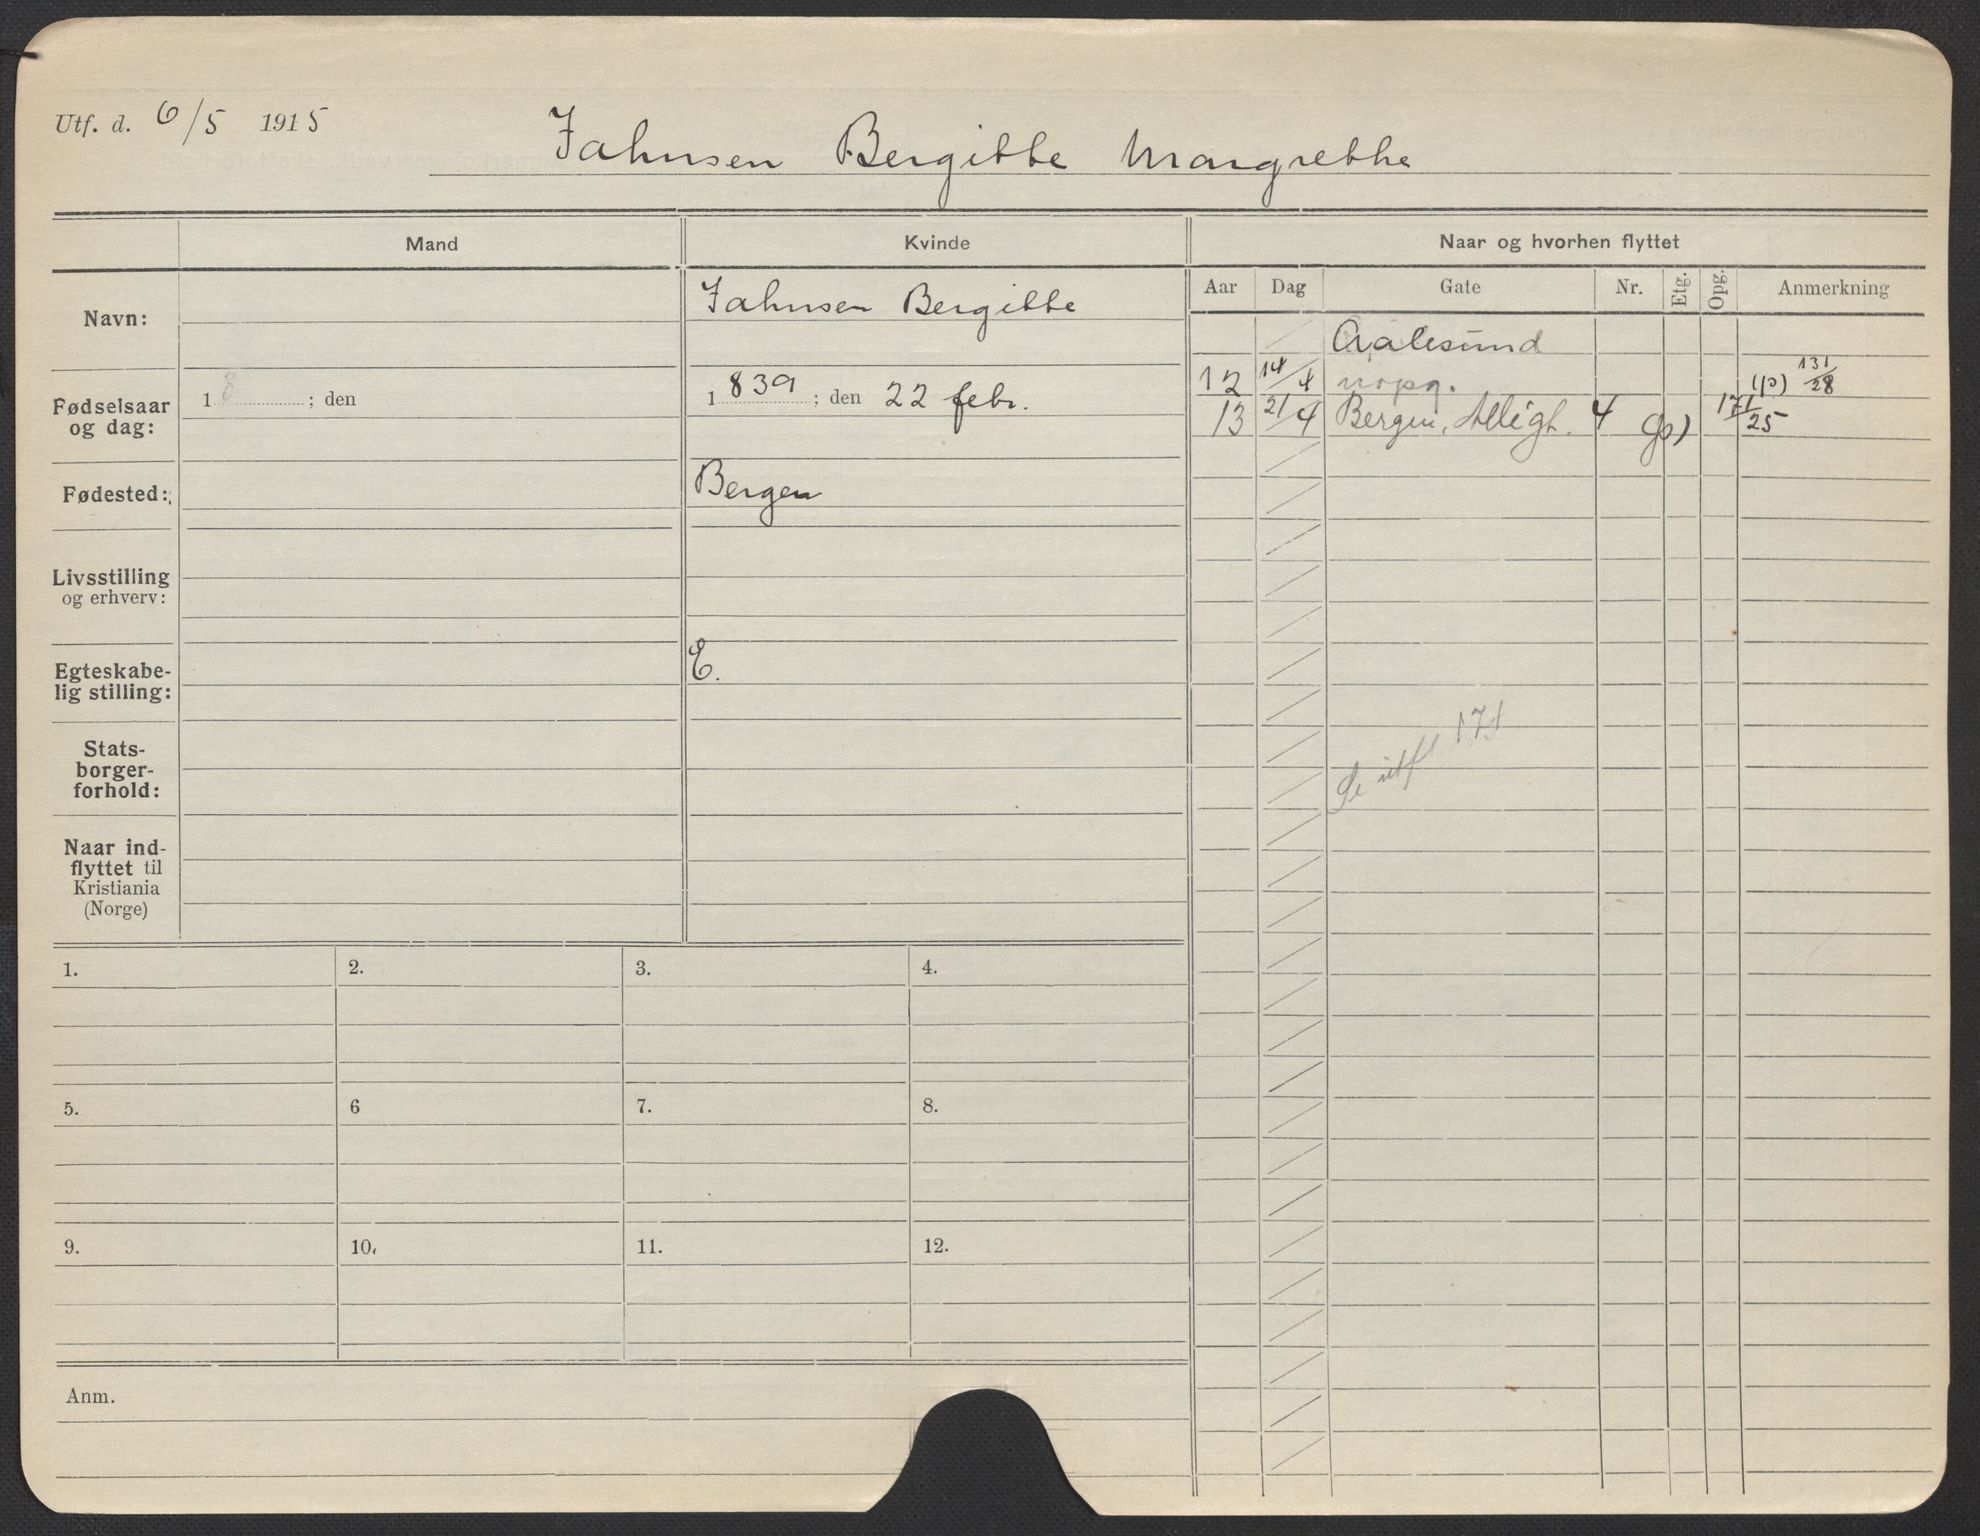 Utf. d. 6/5 1915
Jahnsen Bergitte Margrethe
Mand
Kvinde
Naar og hvorhen flyttet
Navn:
Jahnsen Bergitte
Fødselsaar
og dag:
18 ; den
1839 ; den 22 febr.
Fødested:
Bergen
Livsstilling
og erhverv:
Egteskabe-
lig stilling:
E.
Stats-
borger-
forhold:
Naar ind-
flyttet til
Kristiania
(Norge)
Aar Dag Gate Nr. Etg. Opg. Anmerkning
Aalesund
12 14/4 uopg. (p) 131/28
13 21/4 Bergen, Alleigt. 4 (p) 171/25
Se utfl 171
1. 2. 3. 4.
5. 6 7. 8.
9. 10. 11. 12.
Anm.